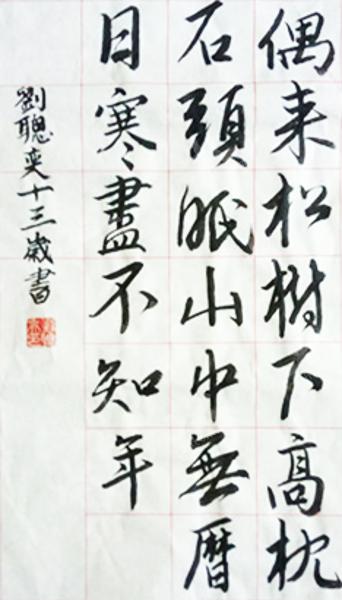 偶来松樹下高枕
石頭眠山中無曆
日寒盡不知年
劉聰奕十三歲書